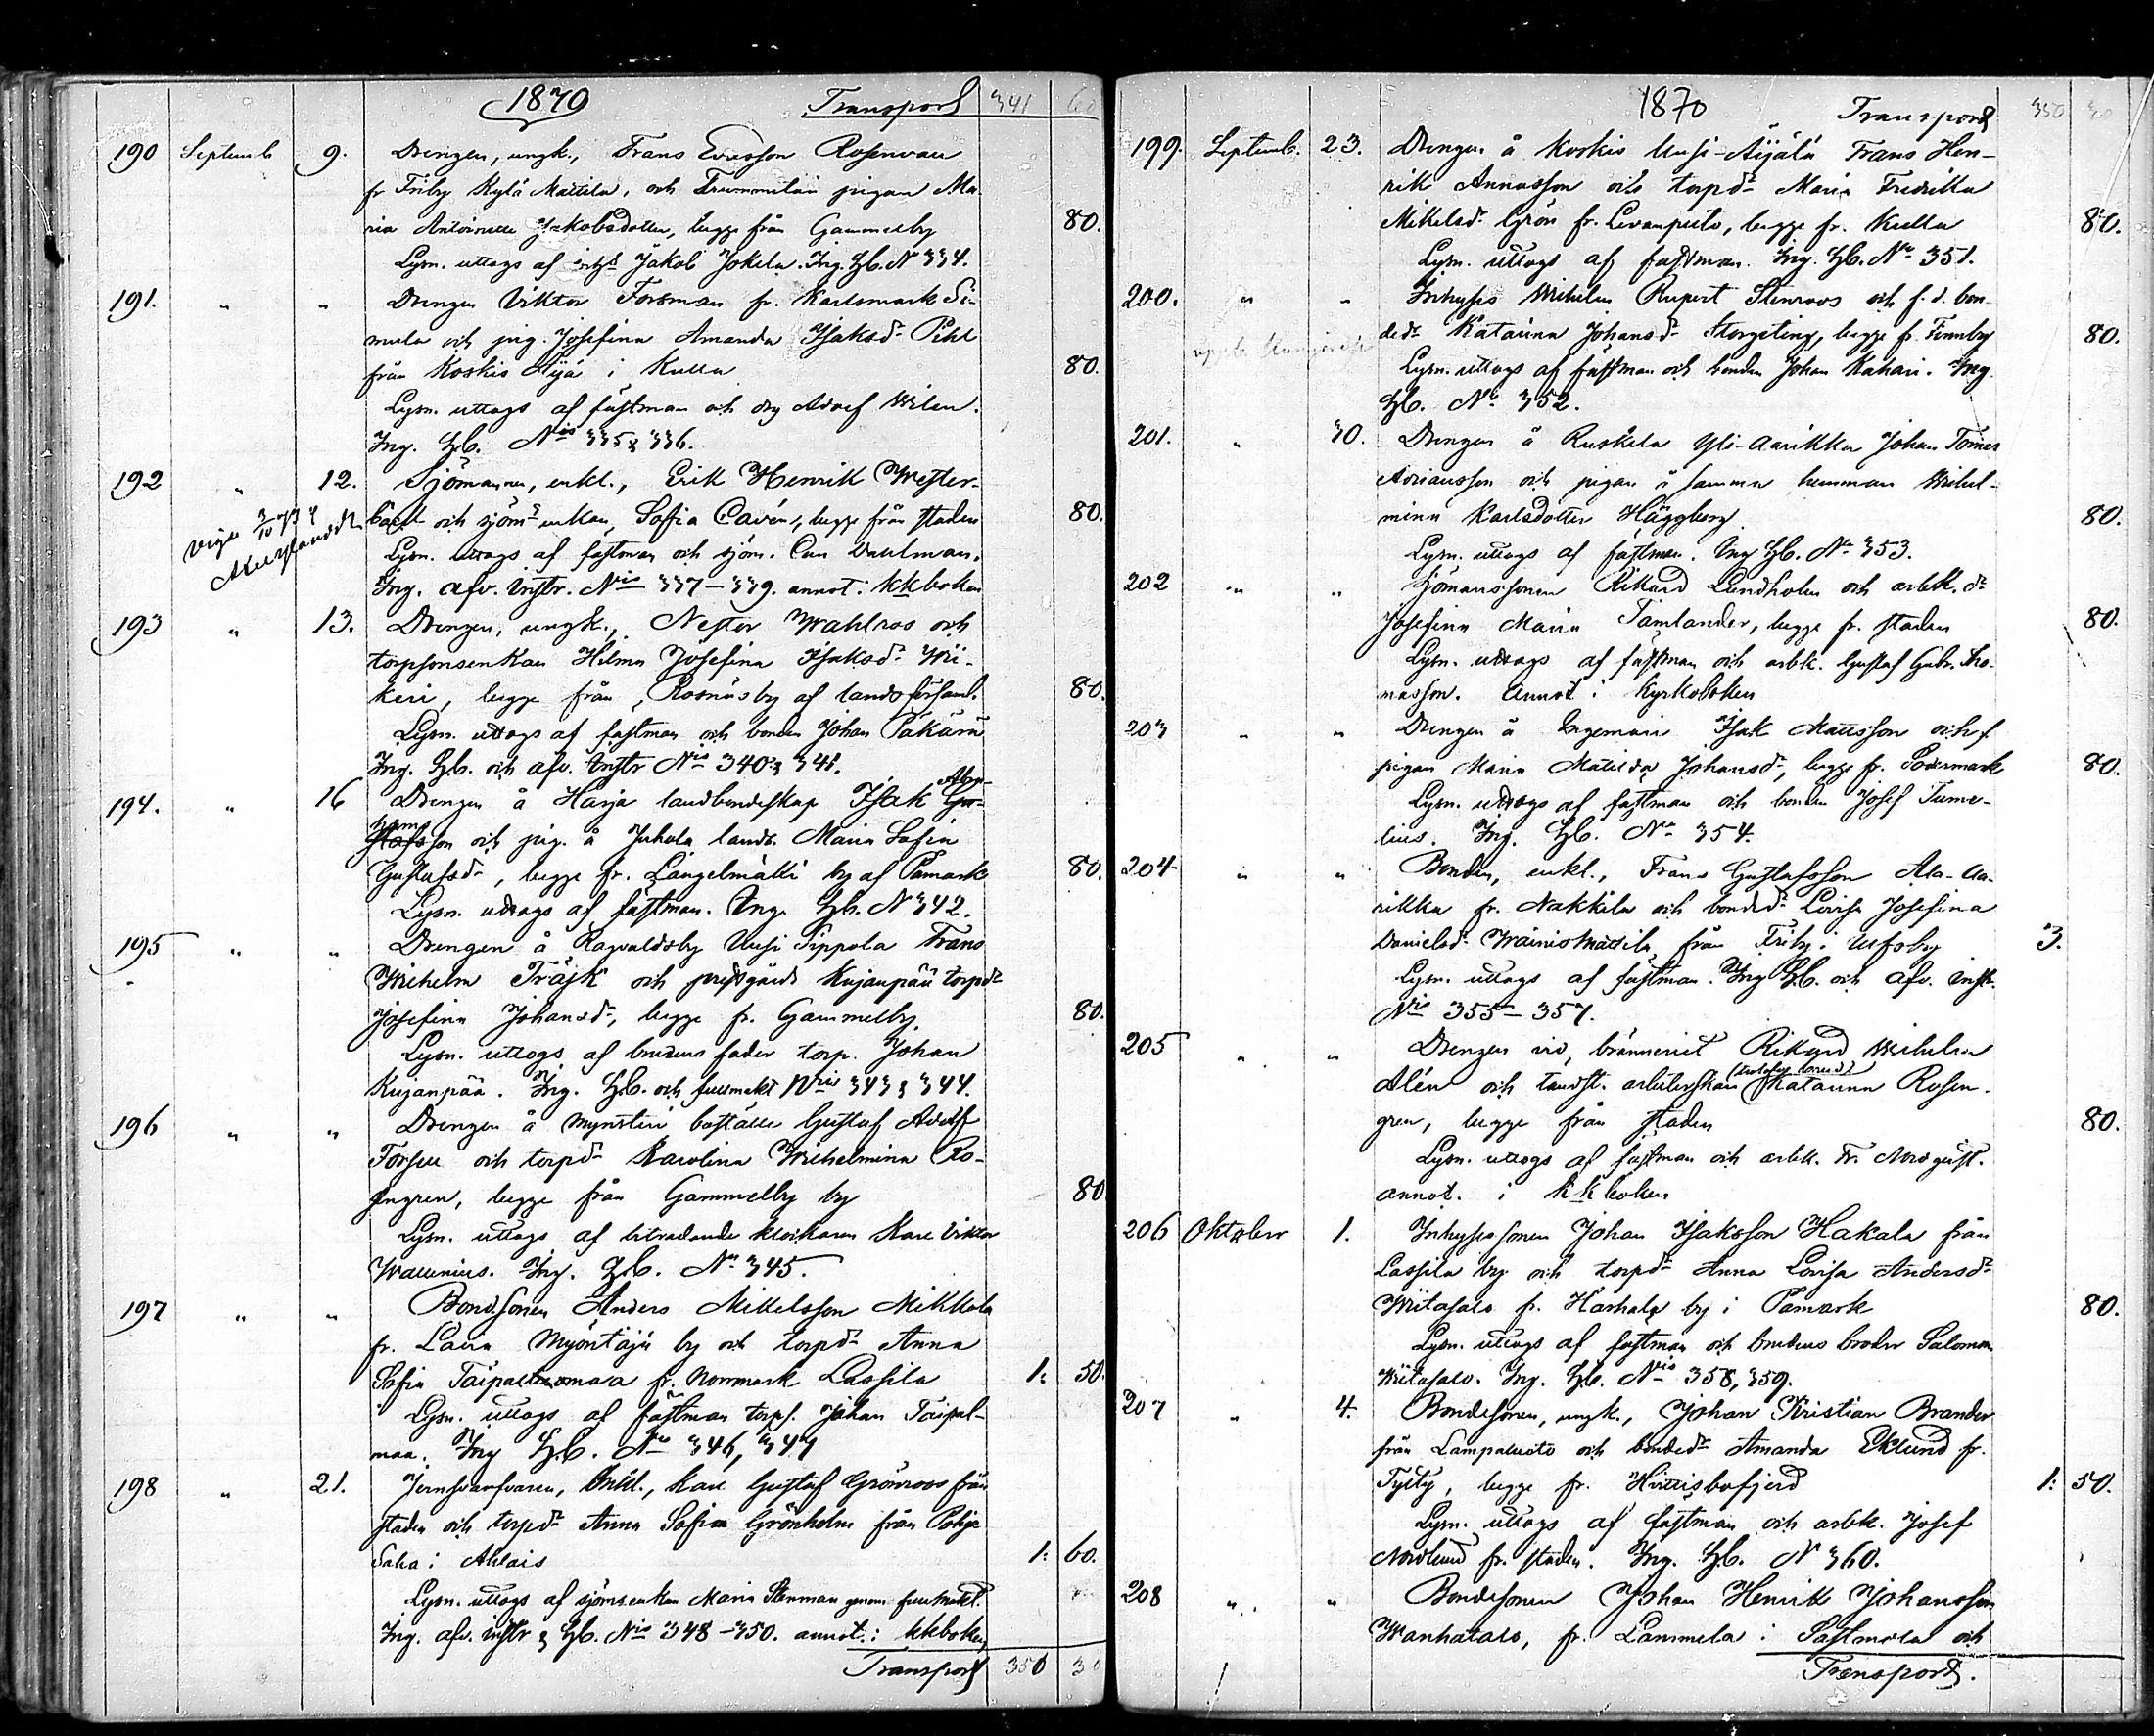 1870 Transport 341 60
190 Septemb 9. Drengen, ungk., Frans Ericsson Rosenvau
fr Friby Kylä Mattila, och Trummitais pigan Ma-
ria Antoinette Jakobsdotter, begge från Gammelby 80.
Lysn. uttogs af Jakob Jokela. Ing. Lb. No 334.
191. " " Drengen Viktor Forsman fr. Karlsmark Si-
mula och pig. Josefina Amanda Isaksdr Pihl
från Koskis Äijä i Kulla 80.
Lysn. uttogs af fästman och drg Adolf Wilen.
Ing. Lb. Nis 335 & 336.
192 " 12. Sjömannen, enkl., Erik Henrik Wester-
back och sjöms enkan, Sofia Cavén, begge från staden 80.
Lysn. uttogs af fästman och sjöm. Carl Dahlman.
Ing. afv. Instr. Nis 337-339. annot. i kkboken
193 " 13. Drengen, ungk., Nestor Wahlroos och
torpsonsenkan Hilma Josefina Isaksdr Wii-
keri, begge från Rosnäsby af landsförsaml. 80.
Lysn. uttogs af fästman och bonden Johan Päkärä
Ing. Lb. och afv. Instr Nis 340 & 341.
194. " 16 Drengen å Harja landbondeskap Isak Gu- Abra-
stafsson hams och pig. å Juhola landb. Maria Sofia
Gustafsdr, begge fr. Längelmäkki by af Påmark 80.
Lysn. uttogs af fästman. Ing. Lb. N 342.
195 " " Drengen å Ragvaldsby Uusi Sippola Frans
Wilhelm Träsk och prestgårds Kujanpää torpdr
Josefina Johansdr, begge fr. Gammelby. 80.
Lysn. uttogs af brudens fader torp. Johan
Kujanpää. Ing. Lb. och fullmakt Nris 343 & 344.
196 " " Drengen å Mynsteri boställe Gustaf Adolf
Forsell och torpdr Karolina Wilhelmina Ro-
sengren, begge från Gammelby by 80
Lysn. uttogs af biträdande klockaren Karl Viktor
Wallenius. Ing. Lb. No 345.
197 " " Bondsonen Anders Mikkelsson Mikkola
fr. Lavia Myöntäjä by och torpdr Anna
Sofia Taipalusmaa fr. Norrmark Lassila 1: 50.
Lysn. uttogs af fästman torps. Johan Taipal-
maa. Ing Lb. No 346, 347
198 " 21. Jernsvarfvaren, enkl., Karl Gustaf Grönroos från
staden och torpdr Anna Sofia Grönholm från Pohja
Saha i Ahlais 1: 60.
Lysn. uttogs af sjömsenkan Maria Stenman genom fullmakt.
Ing. afv. instr & Lb. Nis 348-350. annot. i kkboken
Transport 350 30
1870 Transport 350 30
199. Septemb. 23. Drengen å Koskis Uusi-Äijälä Frans Hen-
rik Annasson och torpdr Maria Fredrika
Mikelsdr Grön fr. Levanpelto, begge fr. Kulla 80.
Lysn. uttogs af fästman. Ing. Lb. No 351.
200. " " Inhyses Wilhelm Rupert Stenroos och f. d. bon-
dedr Katarina Johansdr Storgeting, begge fr. Finnby 80.
Lysn. uttogs af fästman och bonden Johan Kahari. Ing.
Lb. No 352.
201. " 30. Drengen å Ruskela Yli-Aarikka Johan Tomas
Adriansson och pigan å samma hemman Wilhel-
mina Karlsdotter Häggberg. 80.
Lysn. uttogs af fästman. Ing Lb. No 353.
202 " " Sjömanssonen Rikard Lundholm och arbk. dr
Josefina Maria Tamlander, begge fr. staden 80.
Lysn. uttogs af fästman och arbk. Gustaf Gabr. Tho-
masson. Annot i Kyrkoboken
203 " " Drengen å Ingemari Isak Mattsson och f
pigan Maria Matilda Johansdr, begge fr. Södermark 80.
Lysn. uttogs af fästman och bonden Josef Tume-
lius. Ing. Lb. No 354.
204 " " Bonden, enkl., Frans Gustafsson Ala-Aa-
rikka fr. Nakkila och bondedr Lovisa Josefina
Danielsdr Wäiniö Mattila från Friby i Ulfsby 3.
Lysn. uttogs af fästman. Ing Lb. och afv. inst.
Nis 355-357.
205 " " Drengen vid bränneriet Rikard Wilhelm
Alén och tandst. arbeterskan Katarina Rosen-
gren, begge från staden 80.
Lysn. uttogs af fästman och arbk. Fr. Nordqvist.
annot. i kkboken
206 Oktober 1. Inhysessonen Johan Isaksson Hakala från
Lassila by och torpdr Anna Lovisa Andersdr
Wiitasalo fr. Harhala by i Påmark 80.
Lysn. uttogs af fästman och brudens broder Salomon
Wiitasalo. Ing. Lb. Nis 358, 359.
207 " 4. Bondesonen, ungk., Johan Kristian Brander
från Lampaluoto och bondedr Amanda Eklund fr.
Tysty, begge fr. Hvittisbofjerd 1: 50.
Lysn. uttogs af fästman och arbk. Josef
Nordlund fr. staden. Ing. Lb. N 360.
208 " " Bondesonen Johan Henrik Johansson
Wanhatalo, fr. Lammela i Sastmola och
Transport.